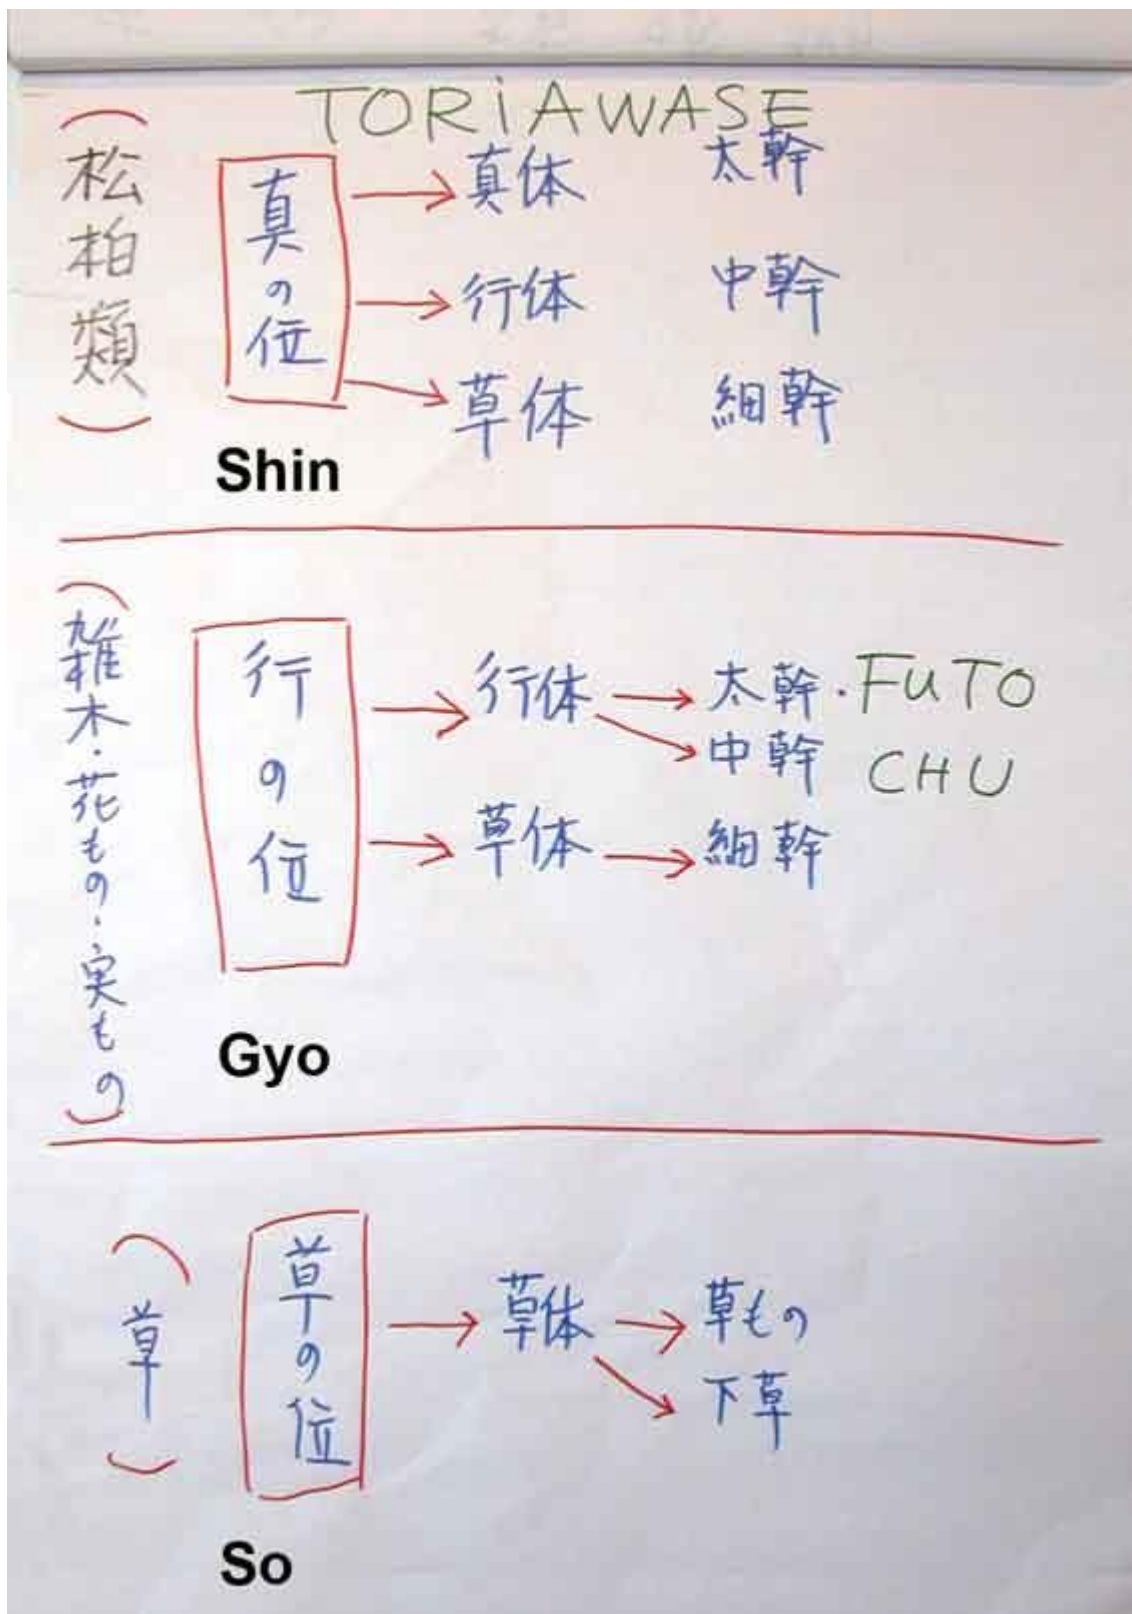 TORiAWASE
(松柏類)
真の位
真体 太幹
行体 中幹
草体 細幹
Shin
(雑木・花もの・実もの)
行の位
行体 太幹・FUTO
中幹 CHU
草体 細幹
Gyo
(草)
草の位
草体 草もの
下草
So